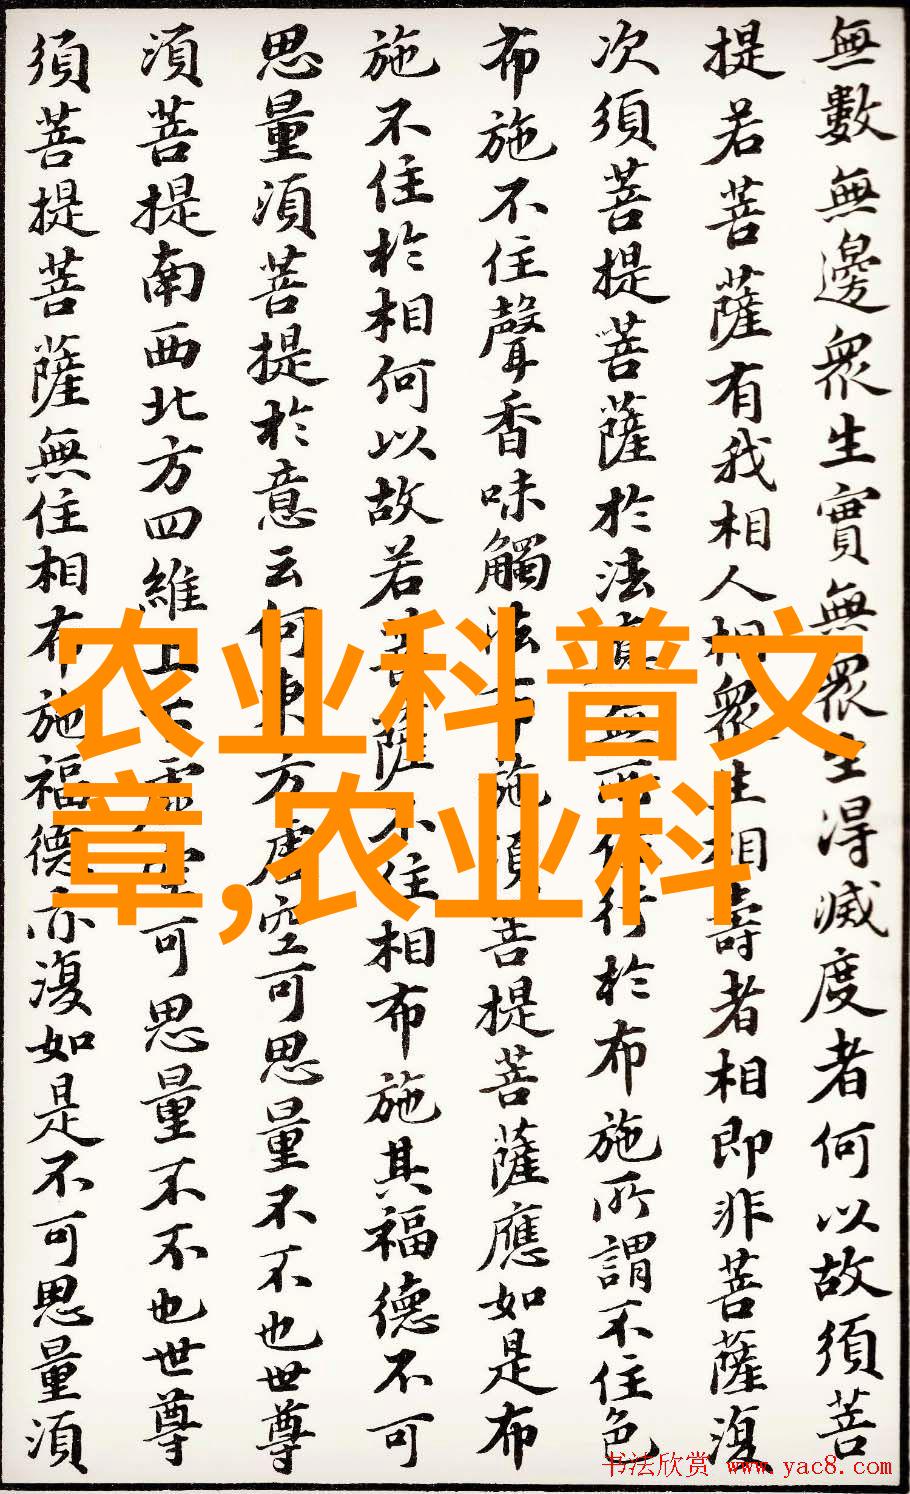 無數無邊衆生實無眾生得滅度者何以故須菩
提若菩薩有我相人相眾生相壽者相即非菩薩復
次須菩提菩薩於法應無所住行於布施所謂不住色
布施不住聲香味觸法布施須菩提菩薩應如是布
施不住於相何以故若菩薩不住相布施其福德不可
思量須菩提於意云何東方虛空可思量不不也世尊
須菩提南西北方四維上下虛空可思量不不也世尊
須菩提菩薩無住相布施福德亦復如是不可思量須
农业科普文
章,农业科
书法欣赏 www.yac8.com